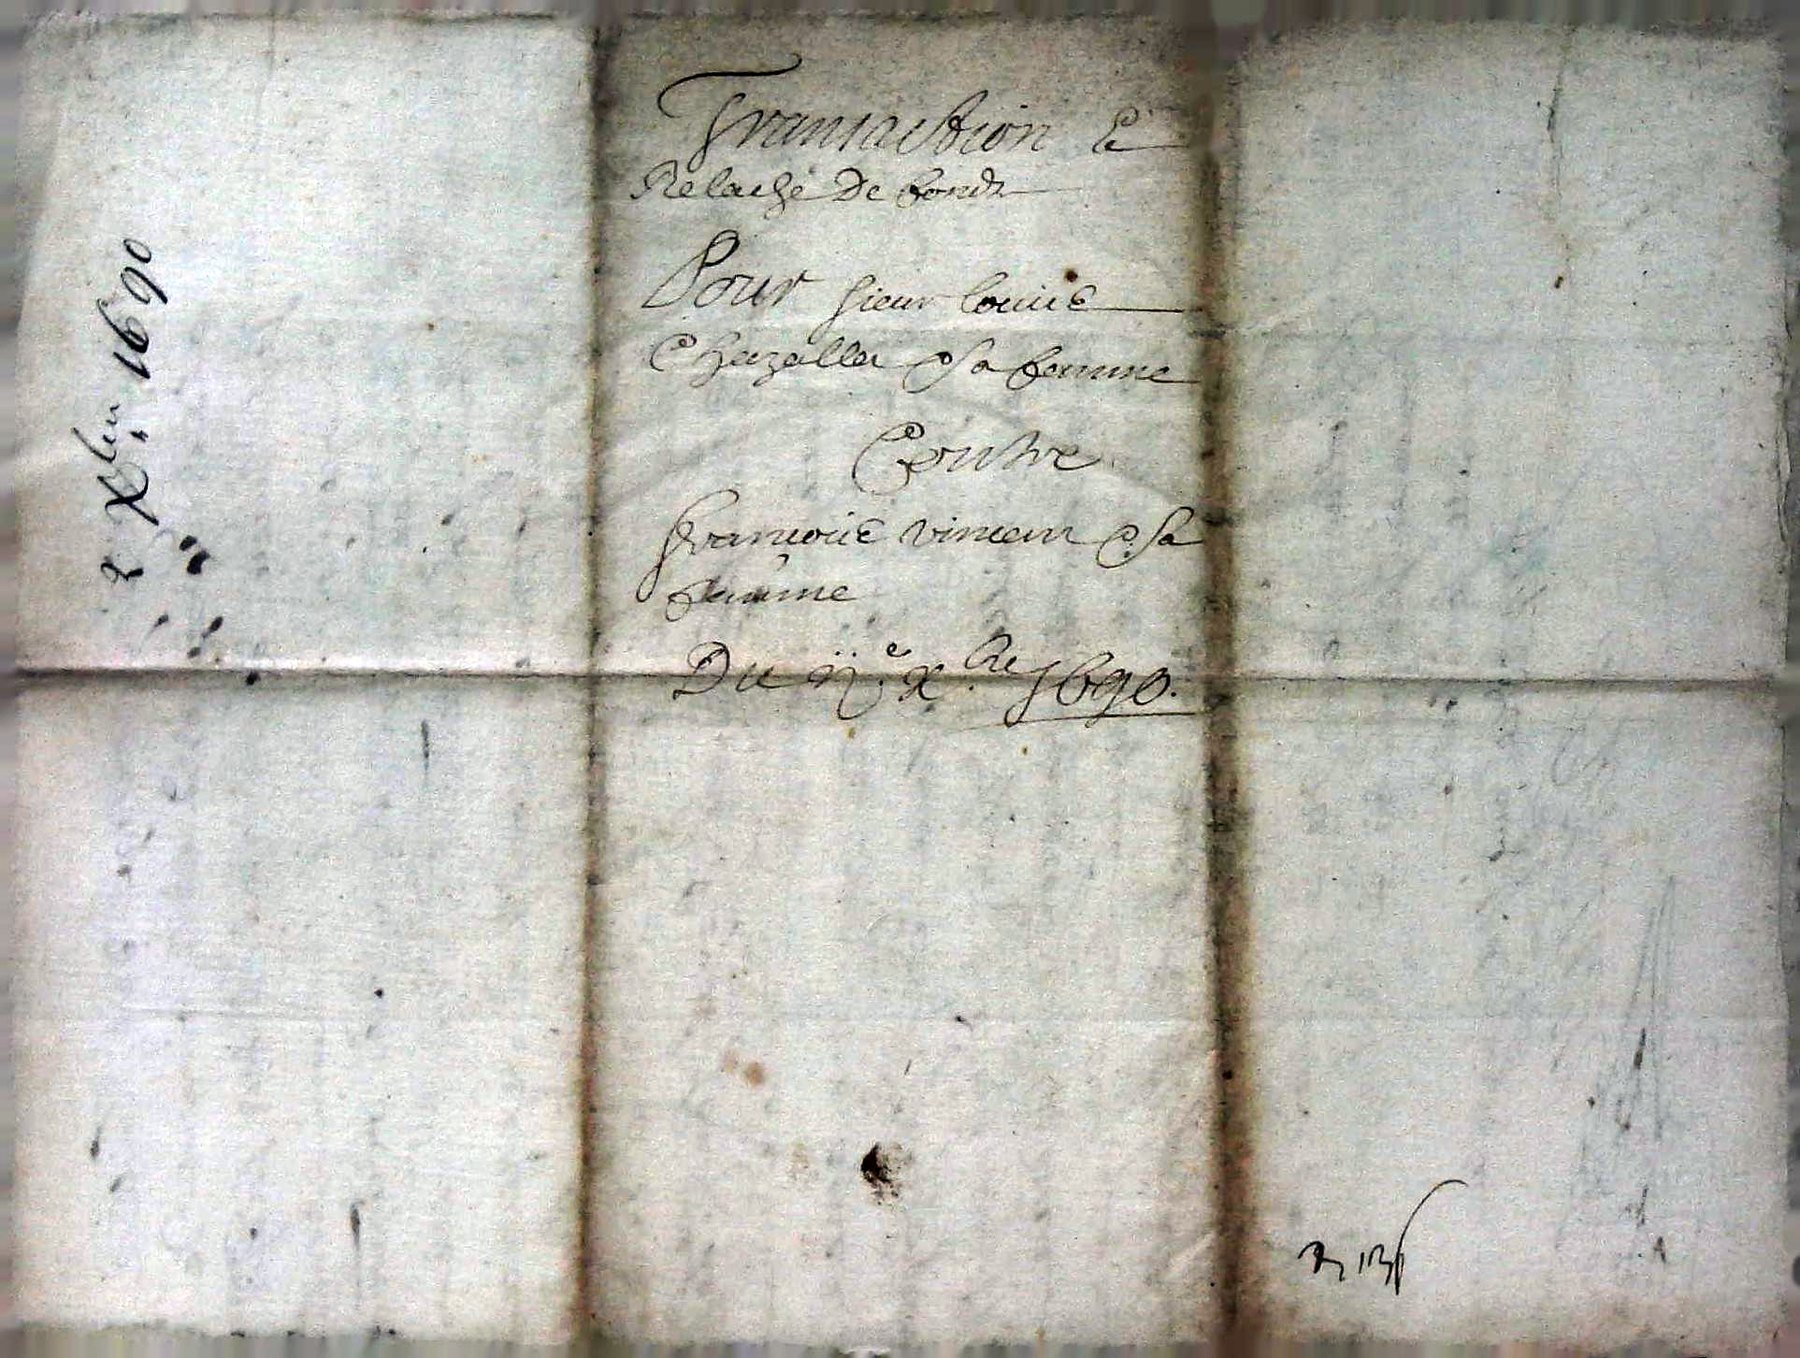 Transaction Et
Relache De fonds
Pour sieur Louis
Chazalla & sa femme
Contre
francois vincent & sa
femme
Du ij.e x.bre 1690.
2 Xbre 1690